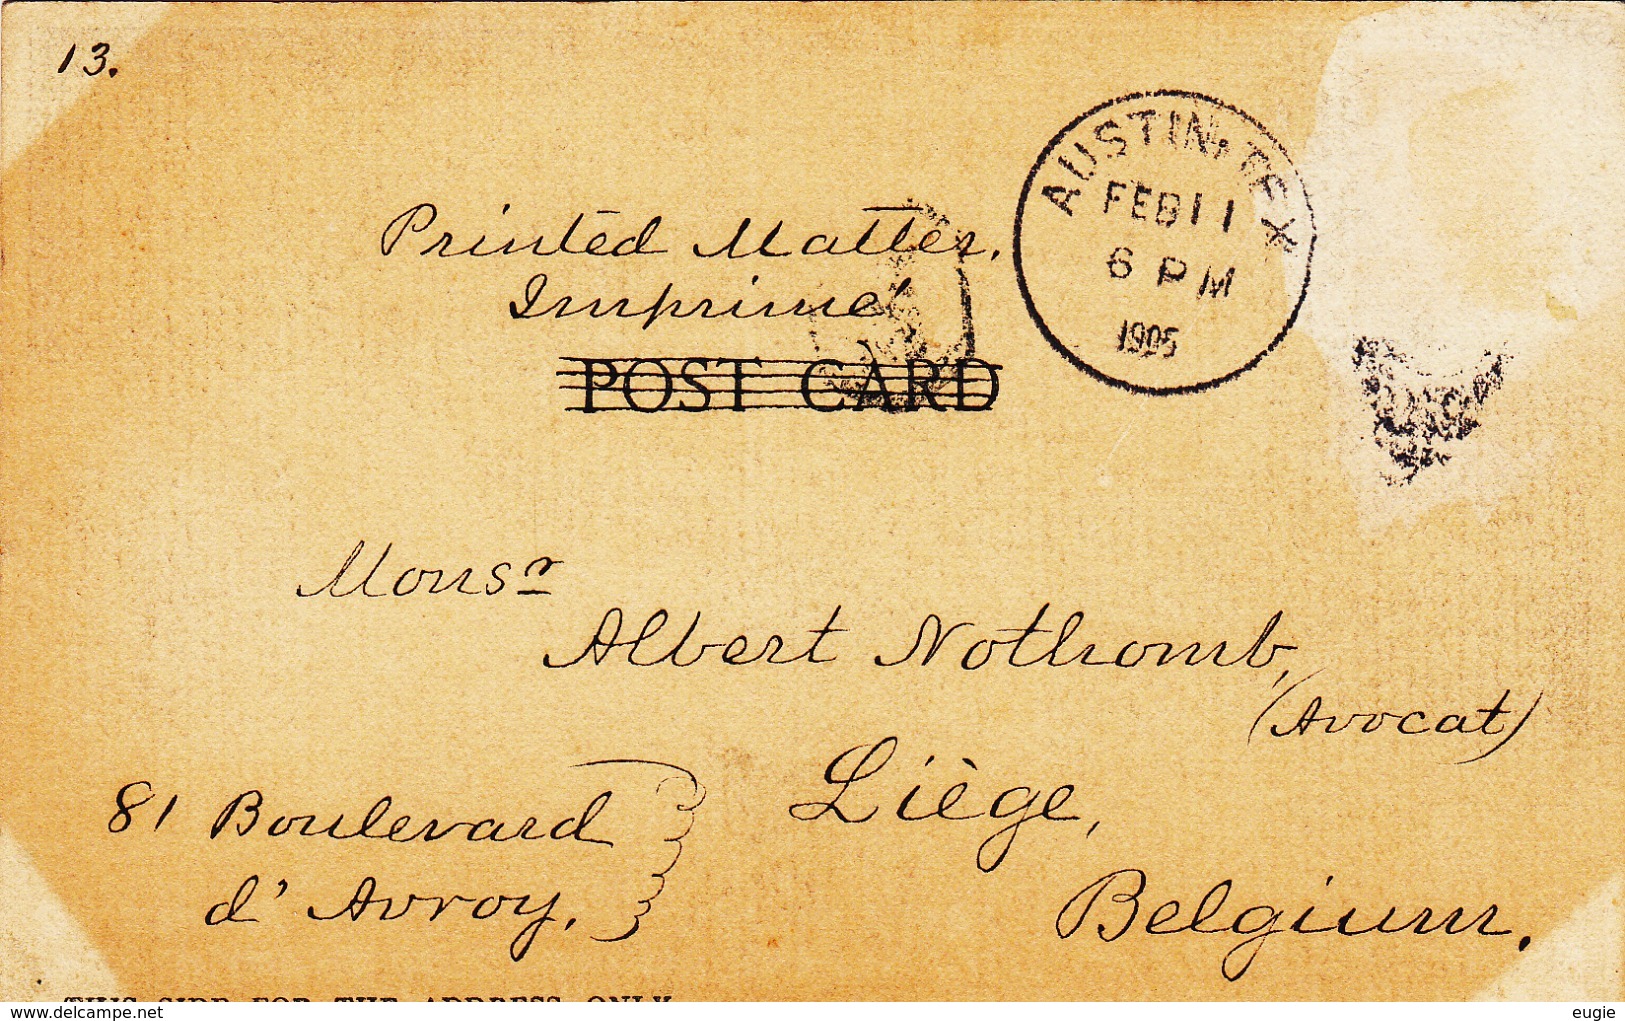 13.
AUSTIN, TEX
FEB 11
6 PM
1905
Printed Matter.
Imprimé
POST CARD
Monsr
Albert Nothomb,
(Avocat)
Liège,
81 Boulevard
d'Avroy.
Belgium.
THIS SIDE FOR THE ADDRESS ONLY
www.delcampe.net
eugie